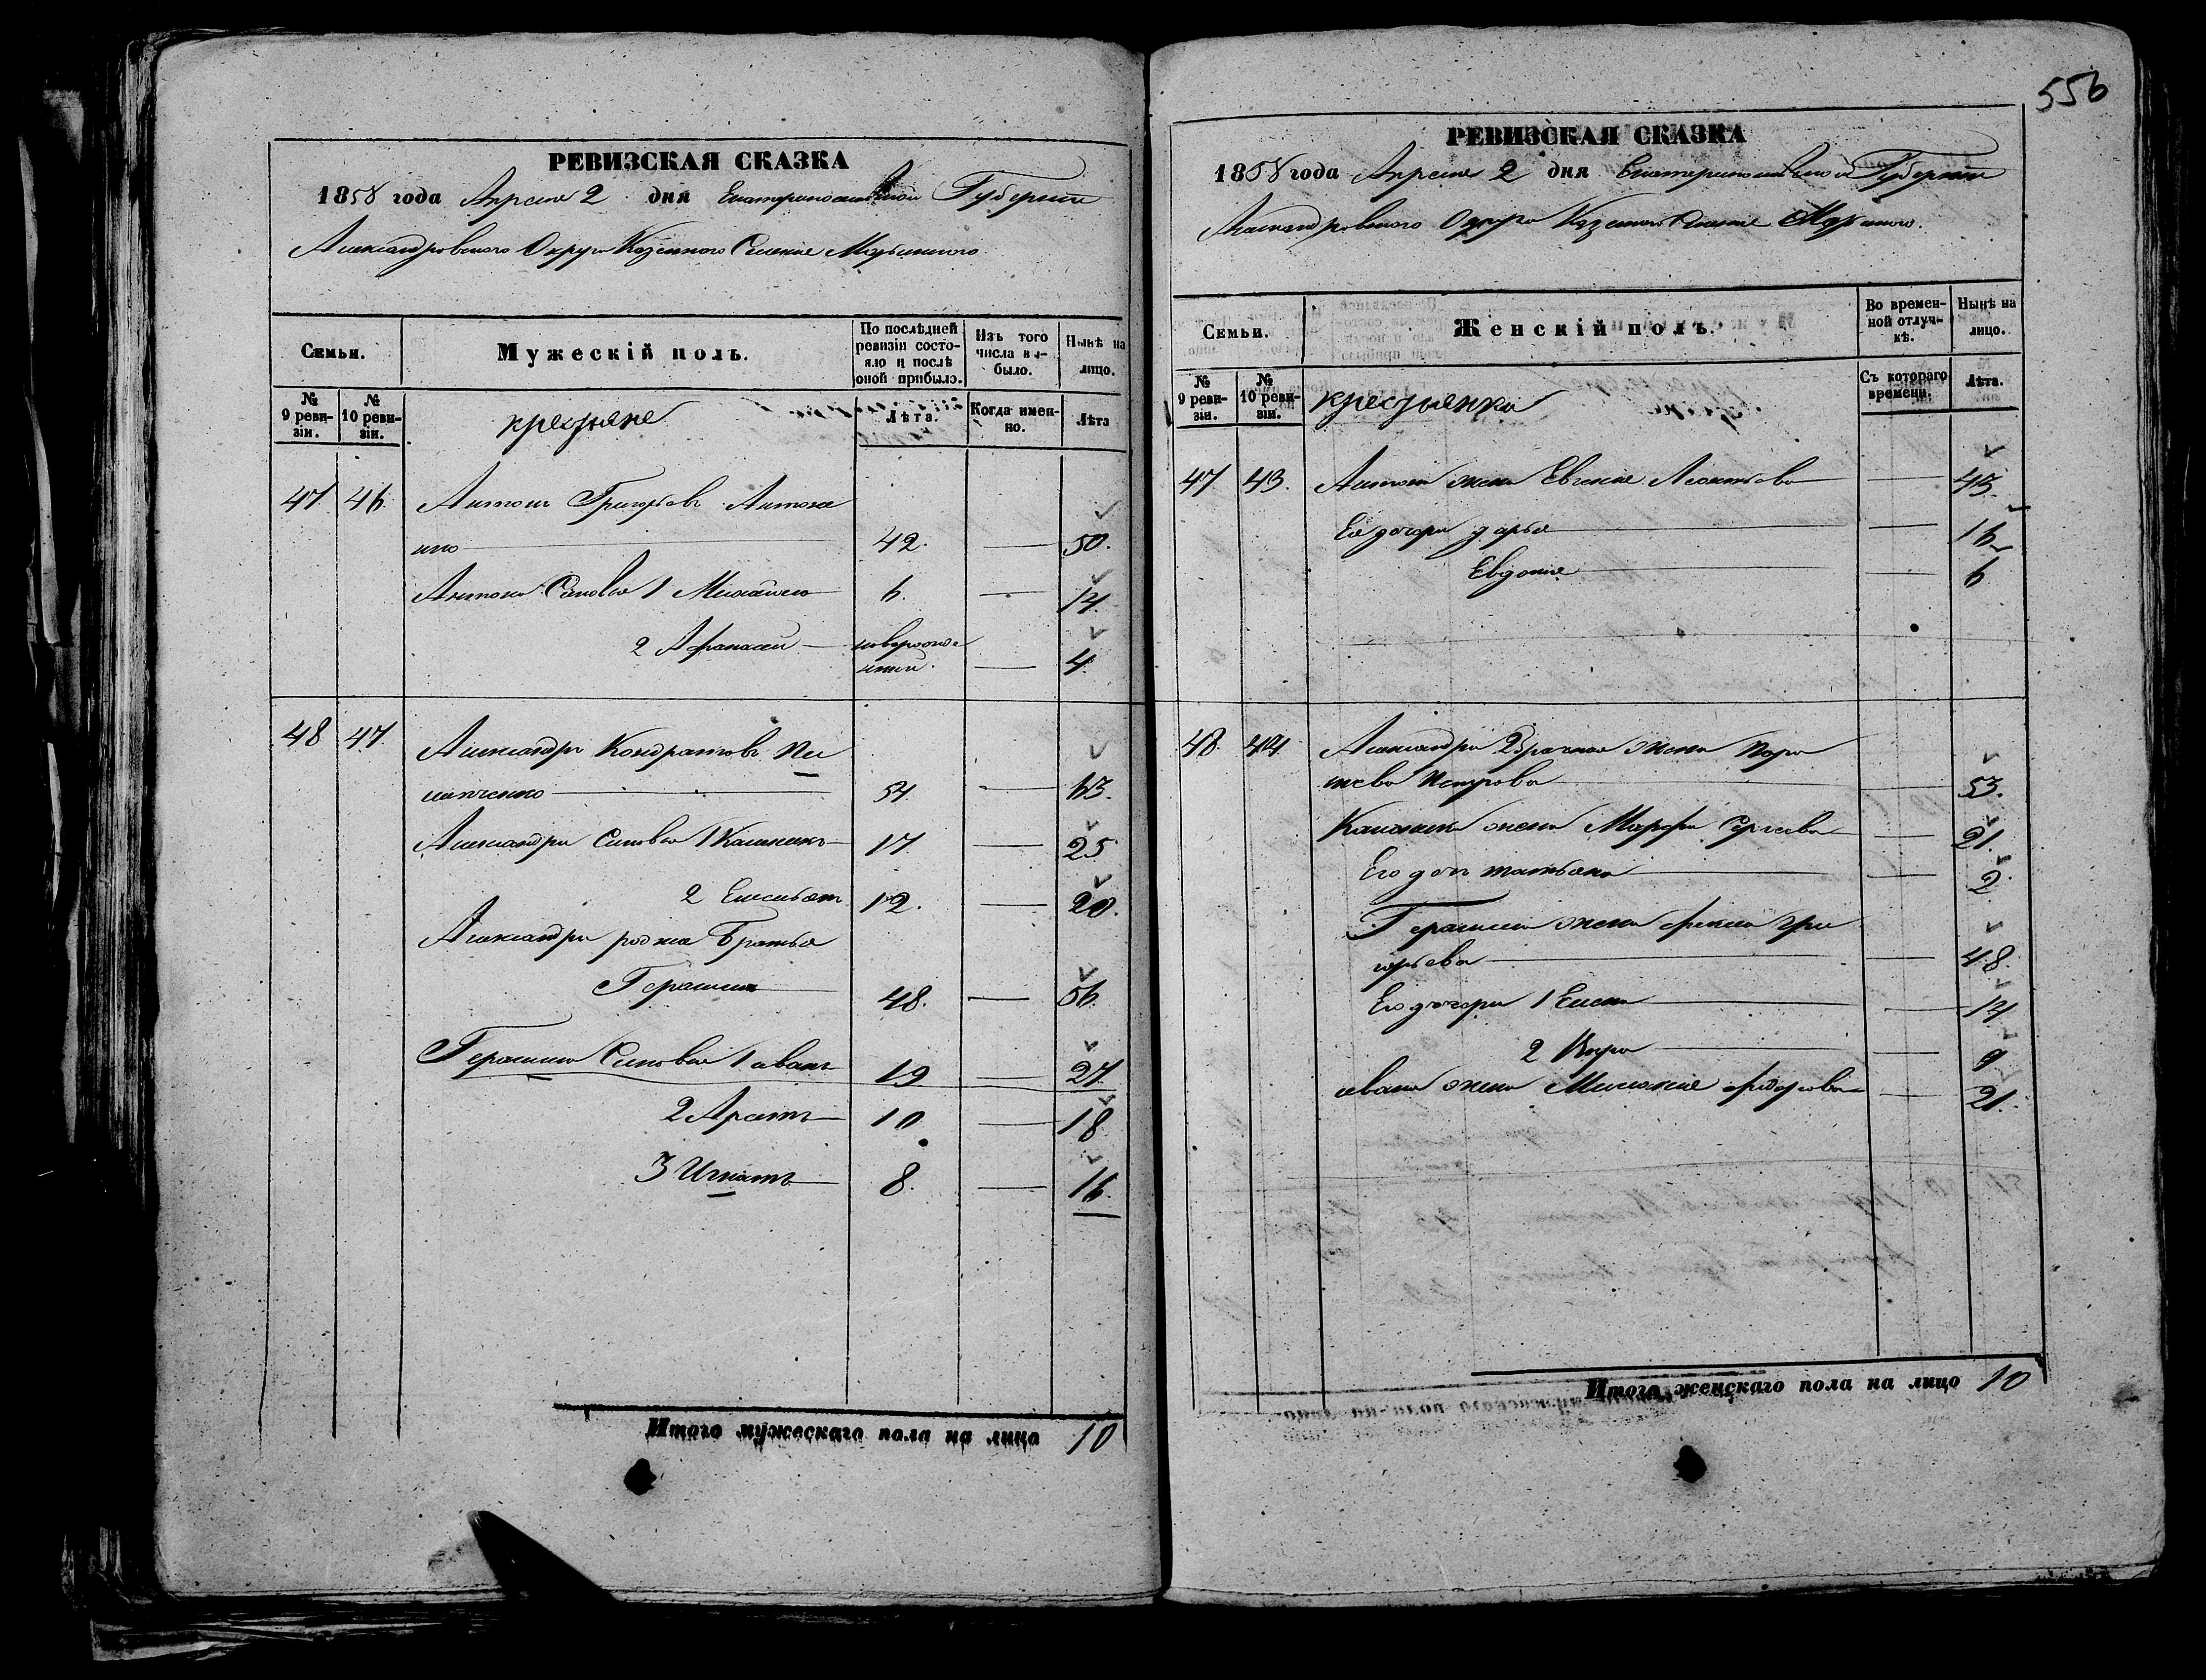 556
РЕВИЗСКАЯ СКАЗКА
1858 года Апреля 2 дня Екатеринославской Губернии
Александровского Округа Казенного Селения
Семьи.
Мужескій полъ.
По послѣдней ревизіи состояло и послѣ оной прибыло.
Изъ того числа выбыло.
Нынѣ на лицо.
№ 9 ревизіи.
№ 10 ревизіи.
крестьяне
Лѣта.
Когда именно.
Лѣта
47. 46. Антонъ Григорьевъ Антоне
нко 42. — 50.
Антона Сыновья 1 Михайло 6. — 14.
2 Афанасий — новорожде
нный. — 4.
48 47. Александръ Кондратовъ Пи
липченко 54. — 63.
Александра Сыновья 1 17. — 25.
2 12. — 20.
Александра родные Братья
Герасимъ 48. — 56.
Герасима Сыновья 1 иванъ 19 — 27.
2 10 — 18.
3 Игнатъ 8. — 16.
Итого мужескаго пола на лицо 10
РЕВИЗСКАЯ СКАЗКА
1858 года Апреля 2 дня Екатеринославской Губернии
Александровского Округа Казенного Селения
Семьи.
Женскій полъ.
Во временной отлучкѣ.
Нынѣ на лицо.
№ 9 ревизіи.
№ 10 ревизіи.
крестьянки
Съ котораго времени.
Лѣта.
47 43. Антона жена Евгения Леонтьева — 45.
Его дочери дарья — 16
Евдокия — 6
48. 44 Александра 2 брачная жена
Петрова — 53.
жена Марфа Сергеева — 21.
Его дочь татьяна — 2.
Герасима жена фекла гри
горьева — 48.
Его дочери 1 Елена — 14
2 — 9.
ивана жена Мелания федорова — 21.
Итого женскаго пола на лицо 10